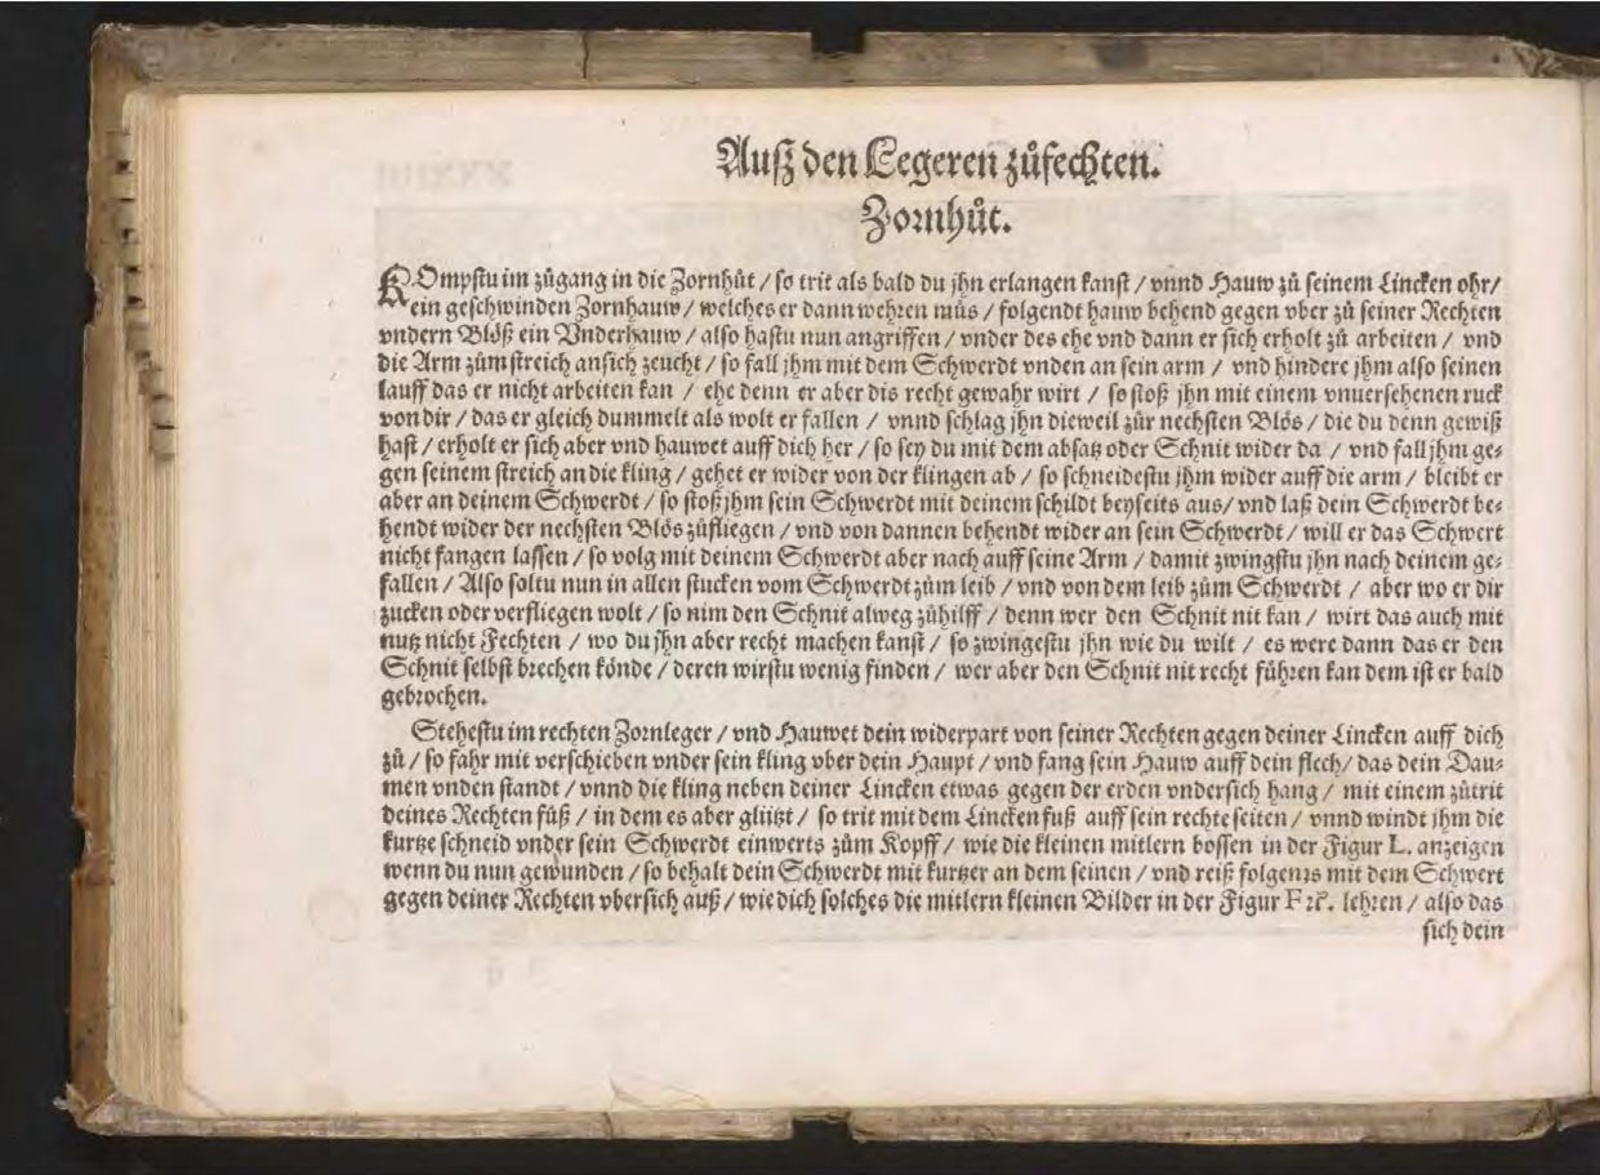 Auß den Legeren zůfechten.
Zornhůt.
KOmpstu im zůgang in die Zornhůt / so trit als bald du jhn erlangen kanst / vnnd Hauw zů seinem Lincken ohr /
ein geschwinden Zornhauw / welches er dann wehren můs / folgendt hauw behend gegen vber zů seiner Rechten
vndern Blöß ein Vnderhauw / also hastu nun angriffen / vnder des ehe vnd dann er sich erholt zů arbeiten / vnd
die Arm zům streich ansich zeucht / so fall jhm mit dem Schwerdt vnden an sein arm / vnd hindere jhm also seinen
lauff das er nicht arbeiten kan / ehe denn er aber dis recht gewahr wirt / so stoß jhn mit einem vnuersehenen ruck
von dir / das er gleich dummelt als wolt er fallen / vnnd schlag jhn dieweil zůr nechsten Blös / die du denn gewiß
hast / erholt er sich aber vnd hauwet auff dich her / so sey du mit dem absatz oder Schnit wider da / vnd fall jhm ge-
gen seinem streich an die kling / gehet er wider von der klingen ab / so schneidestu jhm wider auff die arm / bleibt er
aber an deinem Schwerdt / so stoß jhm sein Schwerdt mit deinem schildt beyseits aus / vnd laß dein Schwerdt be-
hendt wider der nechsten Blös zůfliegen / vnd von dannen behendt wider an sein Schwerdt / will er das Schwert
nicht fangen lassen / so volg mit deinem Schwerdt aber nach auff seine Arm / damit zwingstu jhn nach deinem ge-
fallen / Also soltu nun in allen stucken vom Schwerdt zům leib / vnd von dem leib zům Schwerdt / aber wo er dir
zucken oder verfliegen wolt / so nim den Schnit alweg zůhilff / denn wer den Schnit nit kan / wirt das auch mit
nutz nicht Fechten / wo du jhn aber recht machen kanst / so zwingestu jhn wie du wilt / es were dann das er den
Schnit selbst brechen könde / deren wirstu wenig finden / wer aber den Schnit nit recht führen kan dem ist er bald
gebrochen.
Stehestu im rechten Zornleger / vnd Hauwet dein widerpart von seiner Rechten gegen deiner Lincken auff dich
zů / so fahr mit verschieben vnder sein kling vber dein Haupt / vnd fang sein Hauw auff dein flech / das dein Dau-
men vnden standt / vnnd die kling neben deiner Lincken etwas gegen der erden vndersich hang / mit einem zůtrit
deines Rechten fůß / in dem es aber glützt / so trit mit dem Lincken fuß auff sein rechte seiten / vnnd windt jhm die
kurtze schneid vnder sein Schwerdt einwerts zům Kopff / wie die kleinen mitlern bossen in der Figur L. anzeigen
wenn du nun gewunden / so behalt dein Schwerdt mit kurtzer an dem seinen / vnd reiß folgens mit dem Schwert
gegen deiner Rechten vbersich auß / wie dich solches die mitlern kleinen Bilder in der Figur F ꝛc. lehren / also das
sich dein